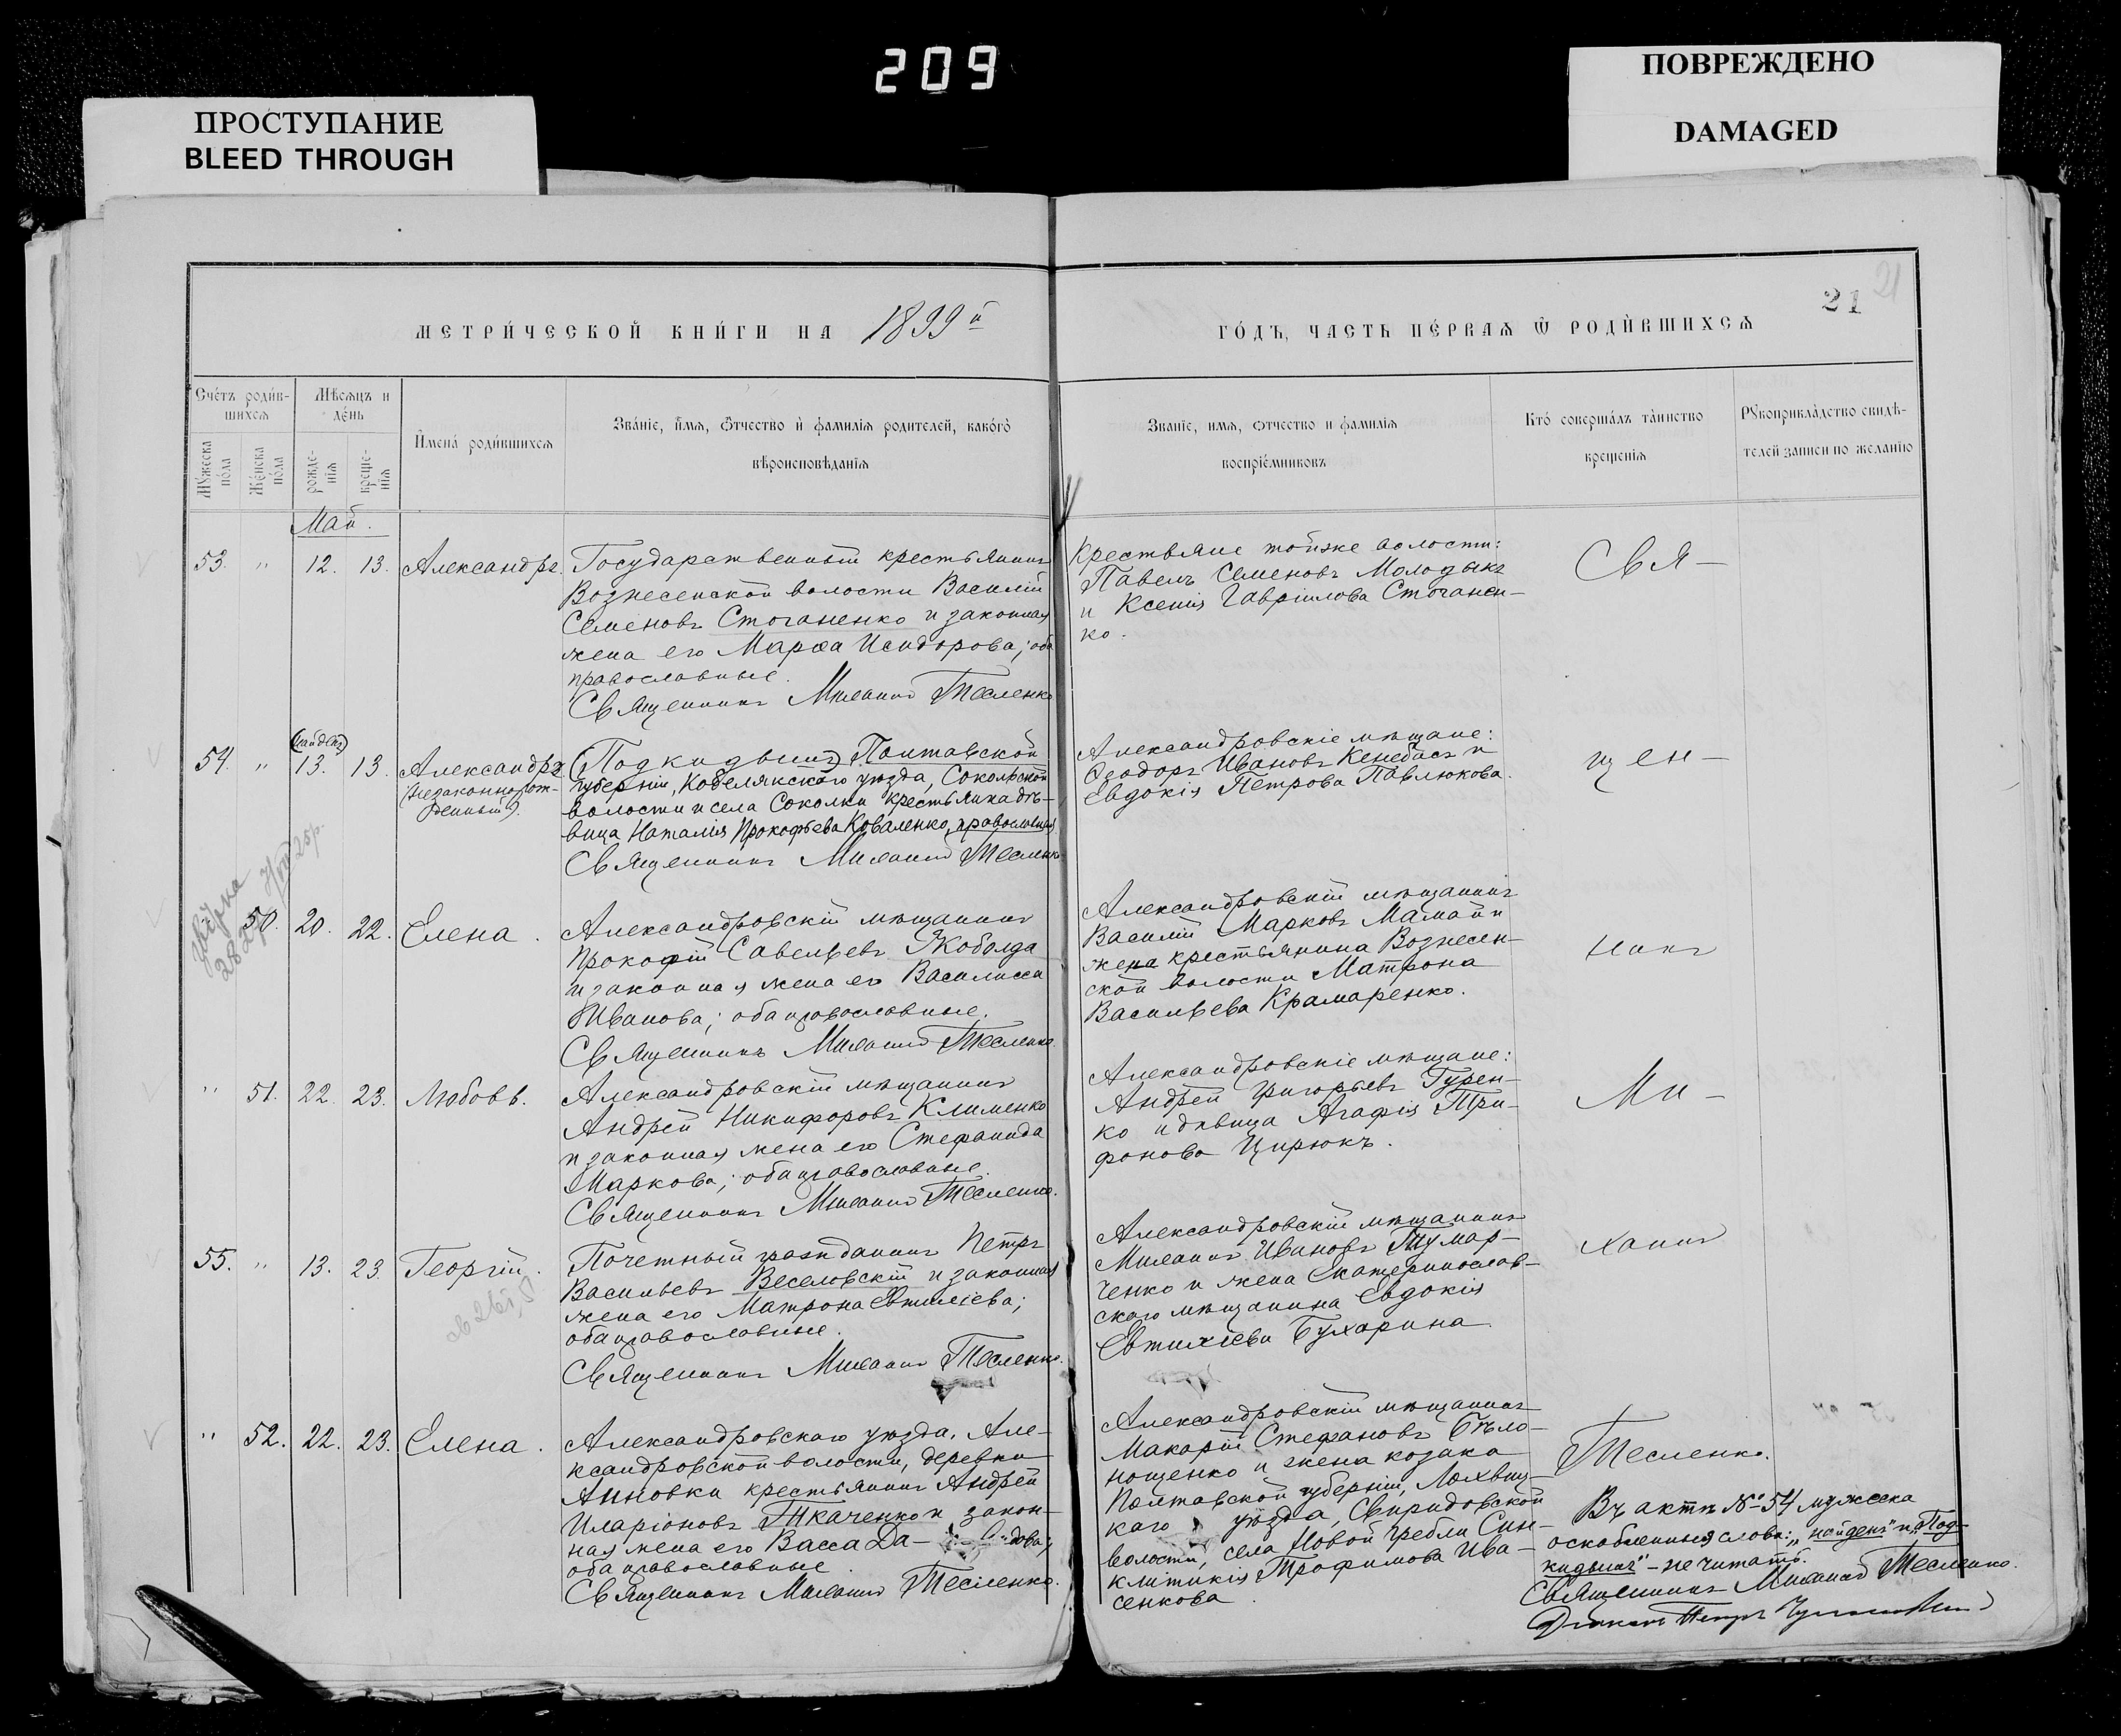 209
ПРОСТУПАНИЕ
BLEED THROUGH
ПОВРЕЖДЕНО
DAMAGED
21
21
МЕТРИ́ЧЕСКОЙ КНИ́ГИ НА 1899й
ГО́ДЪ, ЧАСТЬ ПЕ́РВАѦ Ѿ РОДИ́ВШИХСѦ
Сче́тъ роди́в-
шихсѧ
Мѣсѧцъ и
де́нь
Мꙋ́жеска
по́ла
Же́нска
по́ла
рожде-
нїѧ
креще-
нїѧ
И́мена́ роди́вшихсѧ
Зва́нїе, и́мѧ, ѻ́тчество и҆ фами́лїѧ роди́телей, како́гѡ
вѣроисповѣ́данїѧ
Зва́нїе, имѧ, ѻтчество и фами́лїѧ
воспрїе́мниковъ
Кто́ соверша́лъ та́инство
креще́нїѧ
Рꙋкоприкла́дство свидѣ́-
телей записи по жела́нїю
Май.
53. " 12. 13. Александръ.
Государственный крестьянинъ
Вознесенской волости Василій
Семеновъ Стоганенко и законная
жена его Марѳа Исидорова; оба
православные.
Священникъ Миѳаній Тесленко
Крестьяне тойже волости:
Павелъ Семеновъ Молодыкъ
и Ксенія Гавріилова Стоганен-
ко.
Свя-
(найденъ)
54. " 13. 13. Александръ
(незаконнорож-
денный).
(Подкидышъ) Полтавской
губерніи, Кобелякскаго уѣзда, Сокольской
волости и села Соколки крестьянка дѣ-
вица Наталія Прокофьева Коваленко, православная
Священникъ Миѳаній Тесленко
Александровскіе мѣщане:
Ѳеодоръ Ивановъ Кенебасъ и
Евдокія Петрова Павлюкова.
щен-
50. 20. 22. Елена.
Александровскій мѣщанинъ
Прокофій Савельевъ Жоболда
и законная жена его Василисса
Иванова; оба православные.
Священникъ Миѳаній Тесленко.
Александровскій мѣщанинъ
Василій Марковъ Мамай и
жена крестьянина Вознесен-
ской волости Матрона
Васильева Крамаренко.
никъ
" 51. 22. 23. Любовь.
Александровскій мѣщанинъ
Андрей Никифоровъ Клименко
и законная жена его Стефанида
Маркова; оба православные.
Священникъ Миѳаній Тесленко.
Александровскіе мѣщане:
Андрей Григорьевъ Гурен-
ко и дѣвица Агафія Три-
фонова Цирюкъ.
Ми-
55. " 13. 23. Георгій.
Почетный гражданинъ Петръ
Васильевъ Веселовскій и законная
жена его Матрона Евтихіева;
оба православные.
Священникъ Миѳаній Тесленко.
Александровскій мѣщанинъ
Ивановъ Тумар-
ченко и жена Екатеринослав-
скаго мѣщанина Евдокія
Евтихіева Бухарина
" 52. 22. 23. Елена.
Александровскаго уѣзда, Але-
ксандровской волости, деревни
Анновки крестьянинъ Андрей
Иларіоновъ Ткаченко и закон-
ная жена его Васса Да-
оба православные
Священникъ Миѳаній Тесленко.
Александровскій мѣщанинъ
Макарій Стефановъ Бѣло-
нощенко и жена козака
Полтавской губерніи, Лохвиц-
каго уѣзда, Свиридовской
волости, села Новой Гребли Син-
клитикія Трофимова Ива-
сенкова
Тесленко.
Въ актѣ № 54 мужеска
оскобленныя слова: "найденъ" и "Под-
кидышъ" - не читать.
Священникъ Миѳаній Тесленко.
Діаконъ Петръ